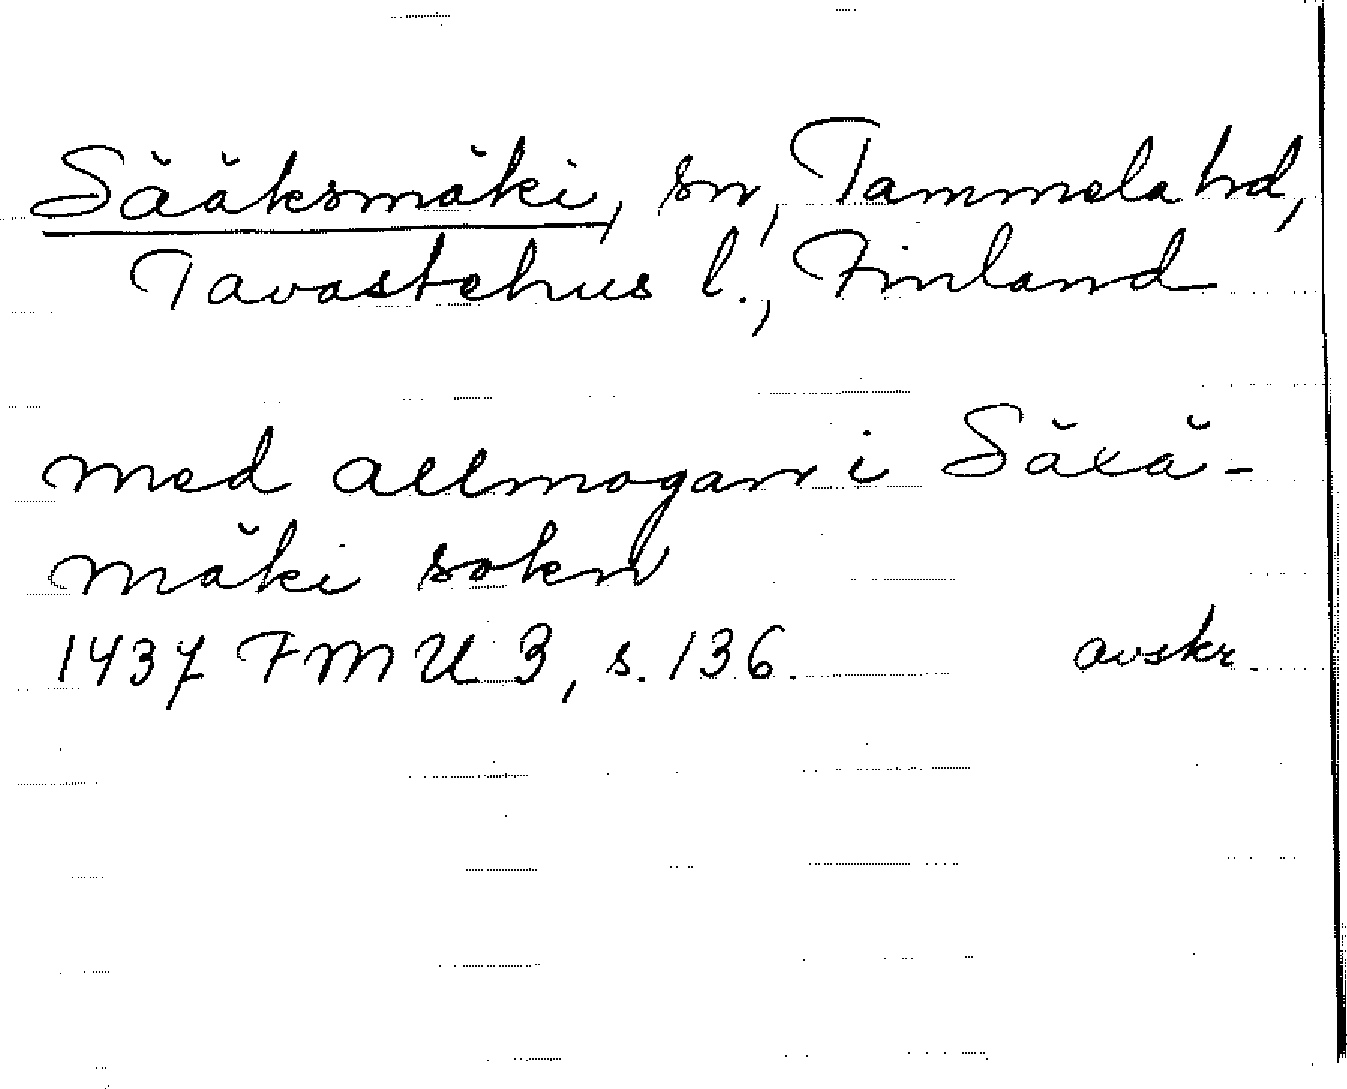 Sääksmäki, sn, Tammela hd,
Tavastehus l., Finland
med allmogan i Säxä-
mäki sokn
1437 FMU 3, s. 136. avskr.